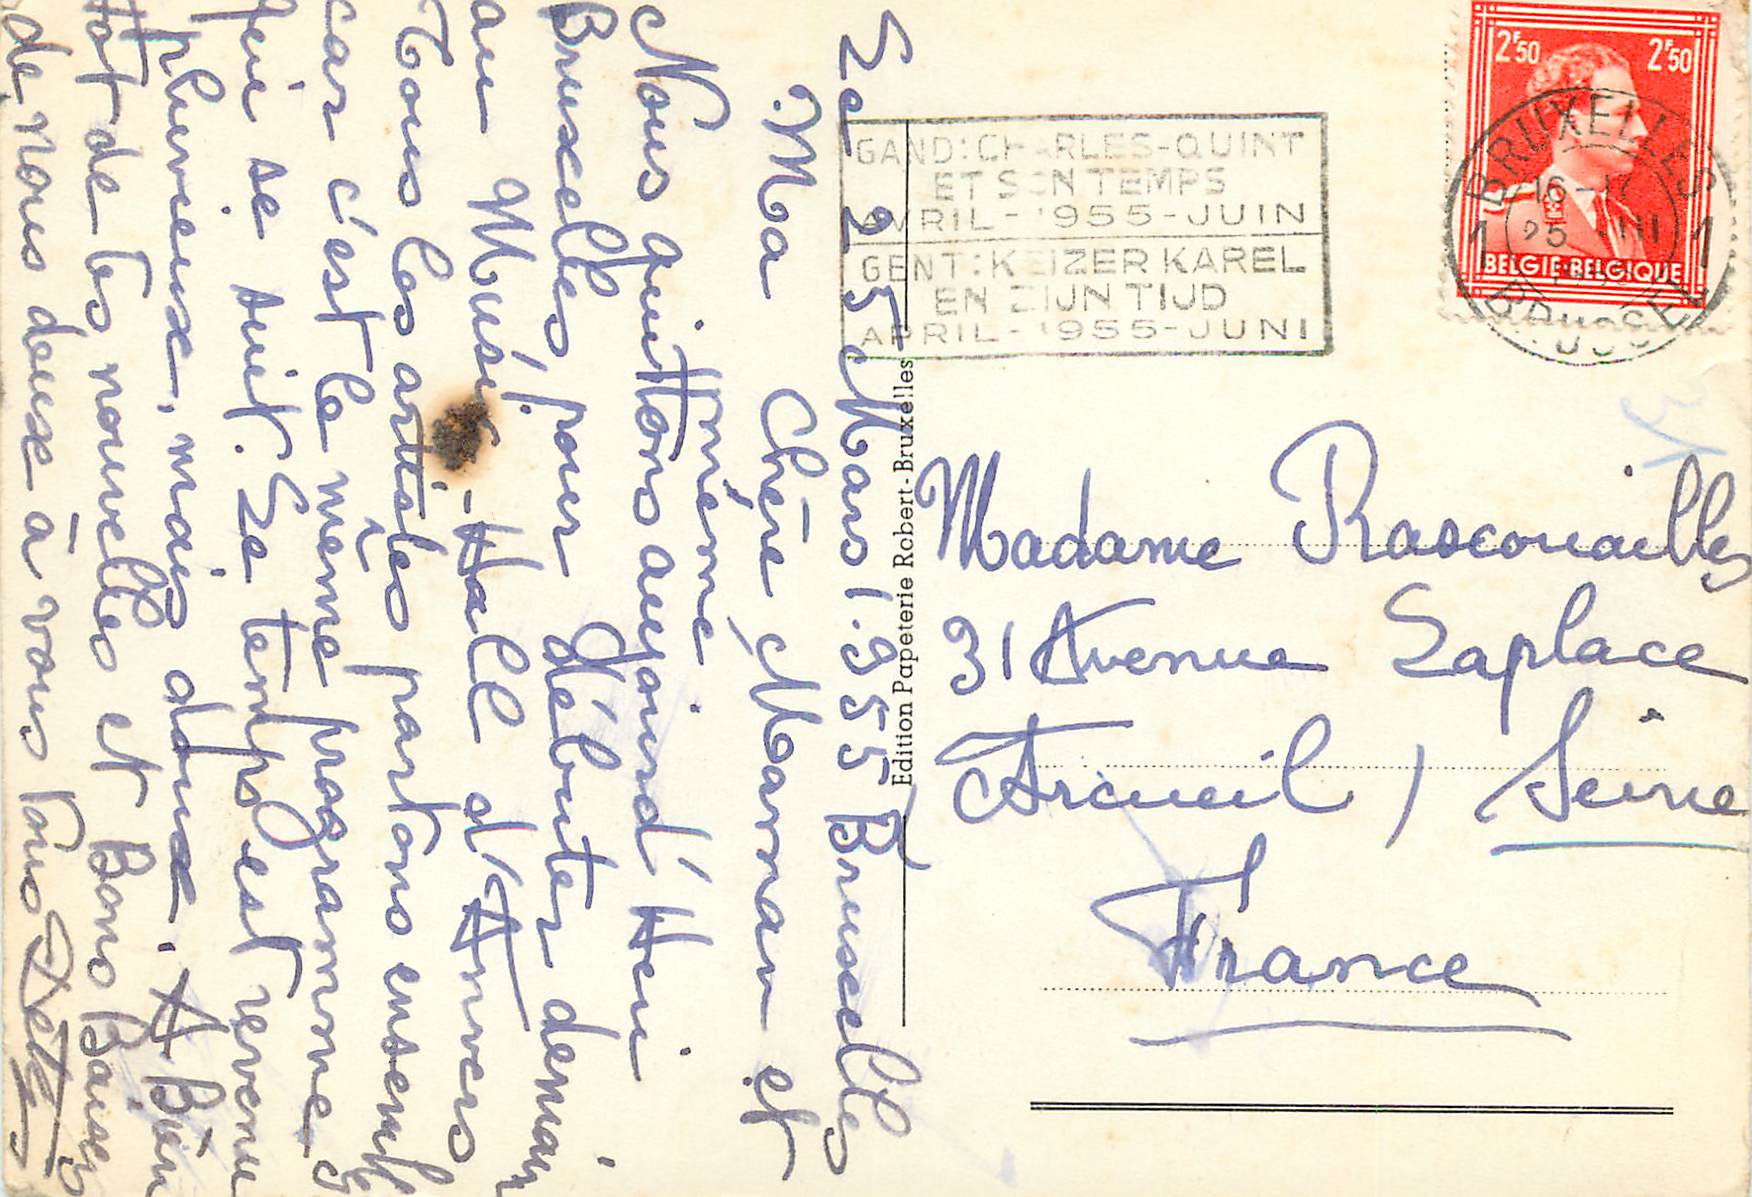 Le 25 Mars 1.955 Bruxelles
Ma Chère Maman et
mémé
Nous quittons aujourd'Hui
Bruxelles pour débuter demain
au Music-Hall d'Anvers
Tous les artistes partons ensemble
car c'est le même programme
qui se suit. Le temps est revenu
pluvieux, mais doux. A Bien
tôt de tes nouvelles et Bons Baisers
de nous deux à vous Tous
GAND: CHARLES-QUINT
ET SON TEMPS
AVRIL - 1955 - JUIN
GENT: KEIZER KAREL
EN ZIJN TIJD
APRIL - 1955 - JUNI
2F50 2F50
BELGIE-BELGIQUE
BRUXELLES
1 1
16-17
25 III
1955
BRUSSEL
Edition Papeterie Robert-Bruxelles
Madame Rascouailles
31 Avenue Laplace
Arcueil / Seine
France